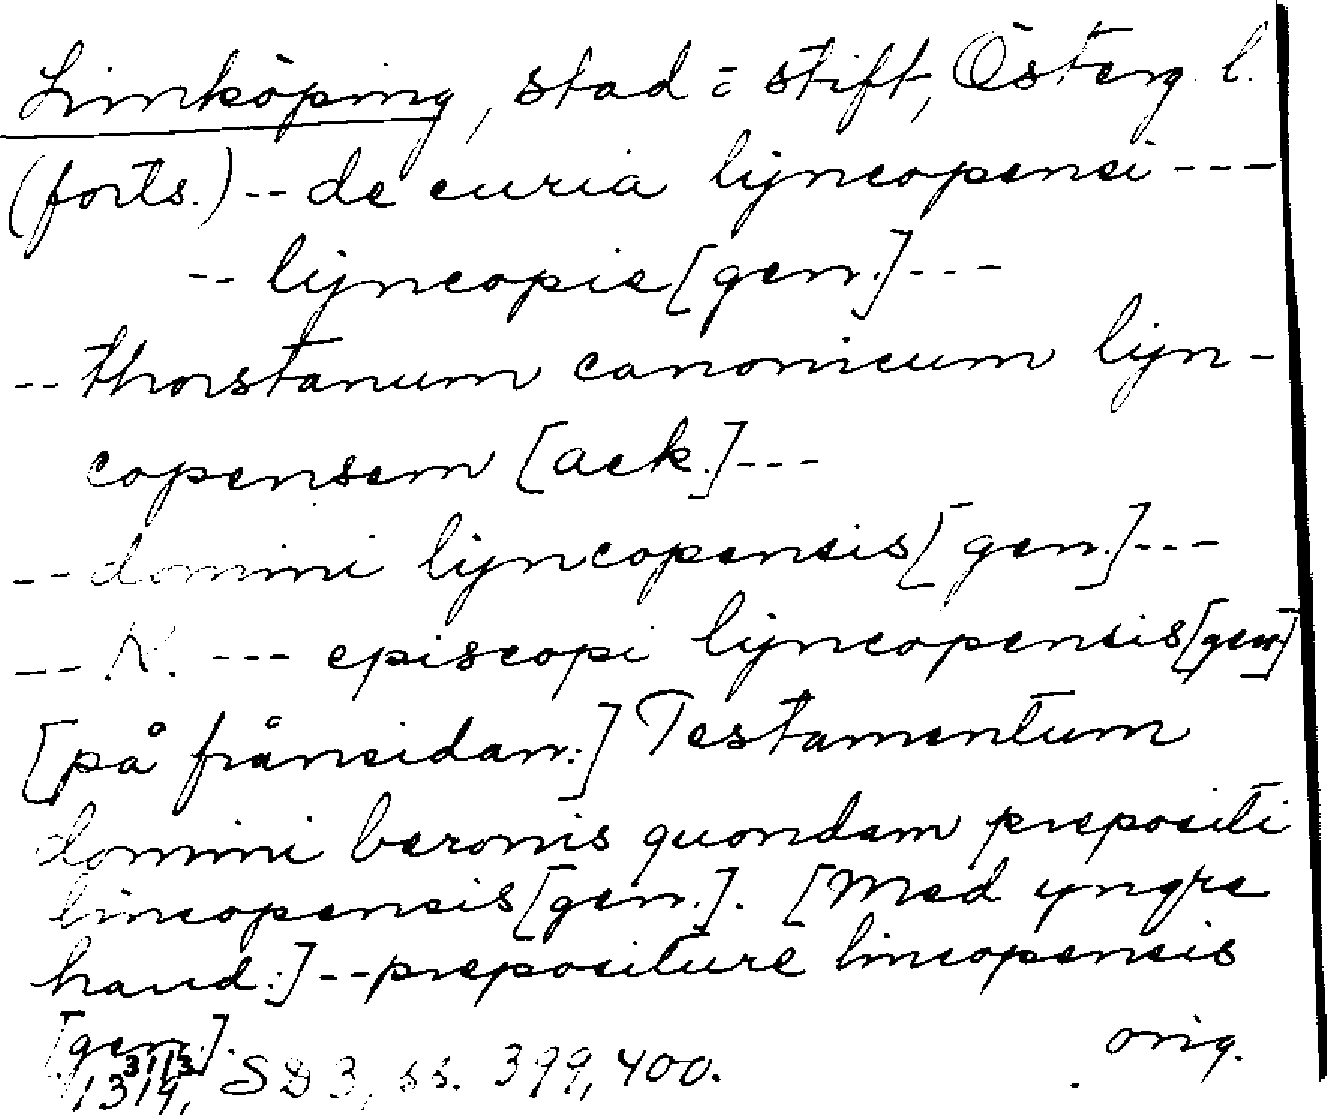 Linköping, stad = stift, Österg. l.
(forts.) -- de curia lyncopensi ---
-- lyncopie [gen.] ---
-- thorstanum canonicum lyn-
copensem [ack.] ---
-- domini lyncopensis [gen.] ---
-- N. --- episcopi lyncopensis [gen]
[på frånsidan:] Testamentum
domini beronis quondam prepositi
lincopensis [gen.]. [Med yngre
hand:] -- prepositure lincopensis
[gen.]. orig.
31/3 1314, SD 3, ss. 399, 400.